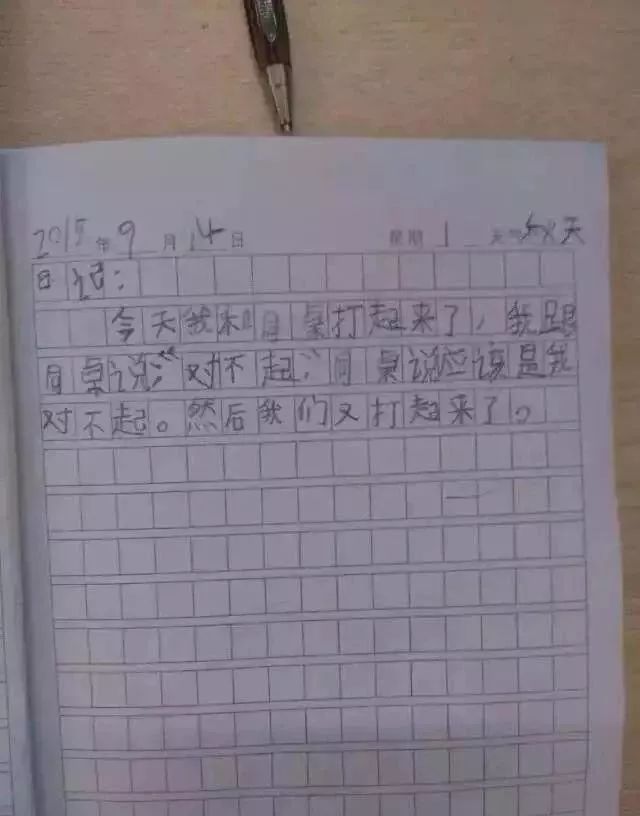 2015年9月14日 星期1 天气
日记：
今天我和同桌打起来了，我跟
同桌说：“对不起”，同桌说应该是我
对不起。然后我们又打起来了。